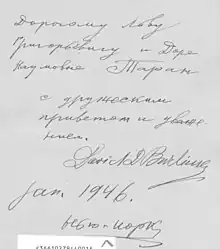 Дорогому Льву
Григорьевичу и Доре
Наумовне Таран
с дружеским
приветом и уваже-
нием.
David D Burliuk
Jan. 1946.
Нью-Иорк